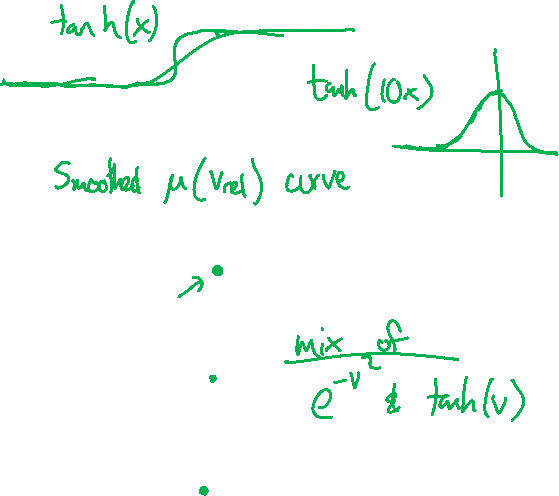 tanh(x)
tanh(10x)
Smoothed μ(v_rel) curve
mix of
e^{-v^2} & tanh(v)